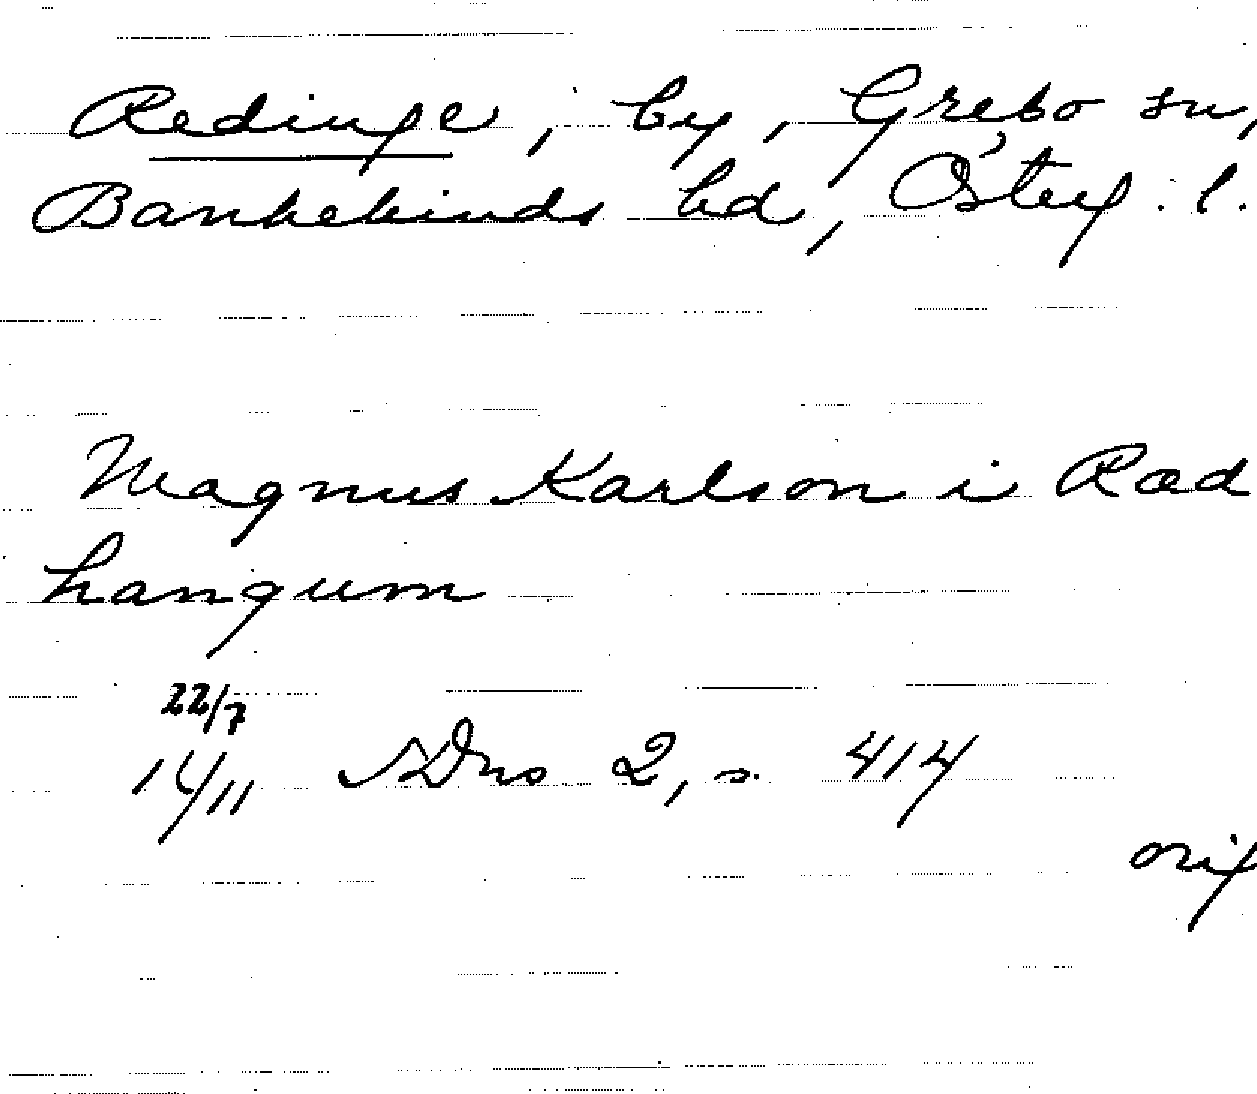 Redinge, by, Grebo sn,
Bankekinds hd, Österg. l.
Magnus Karlson i Rød
hangum
22/7
14/11 SDns 2, s. 414
orig